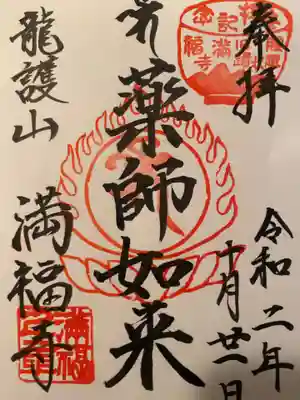 奉拝
令和二年
十月廿一日
薬師如来
龍護山
満福寺